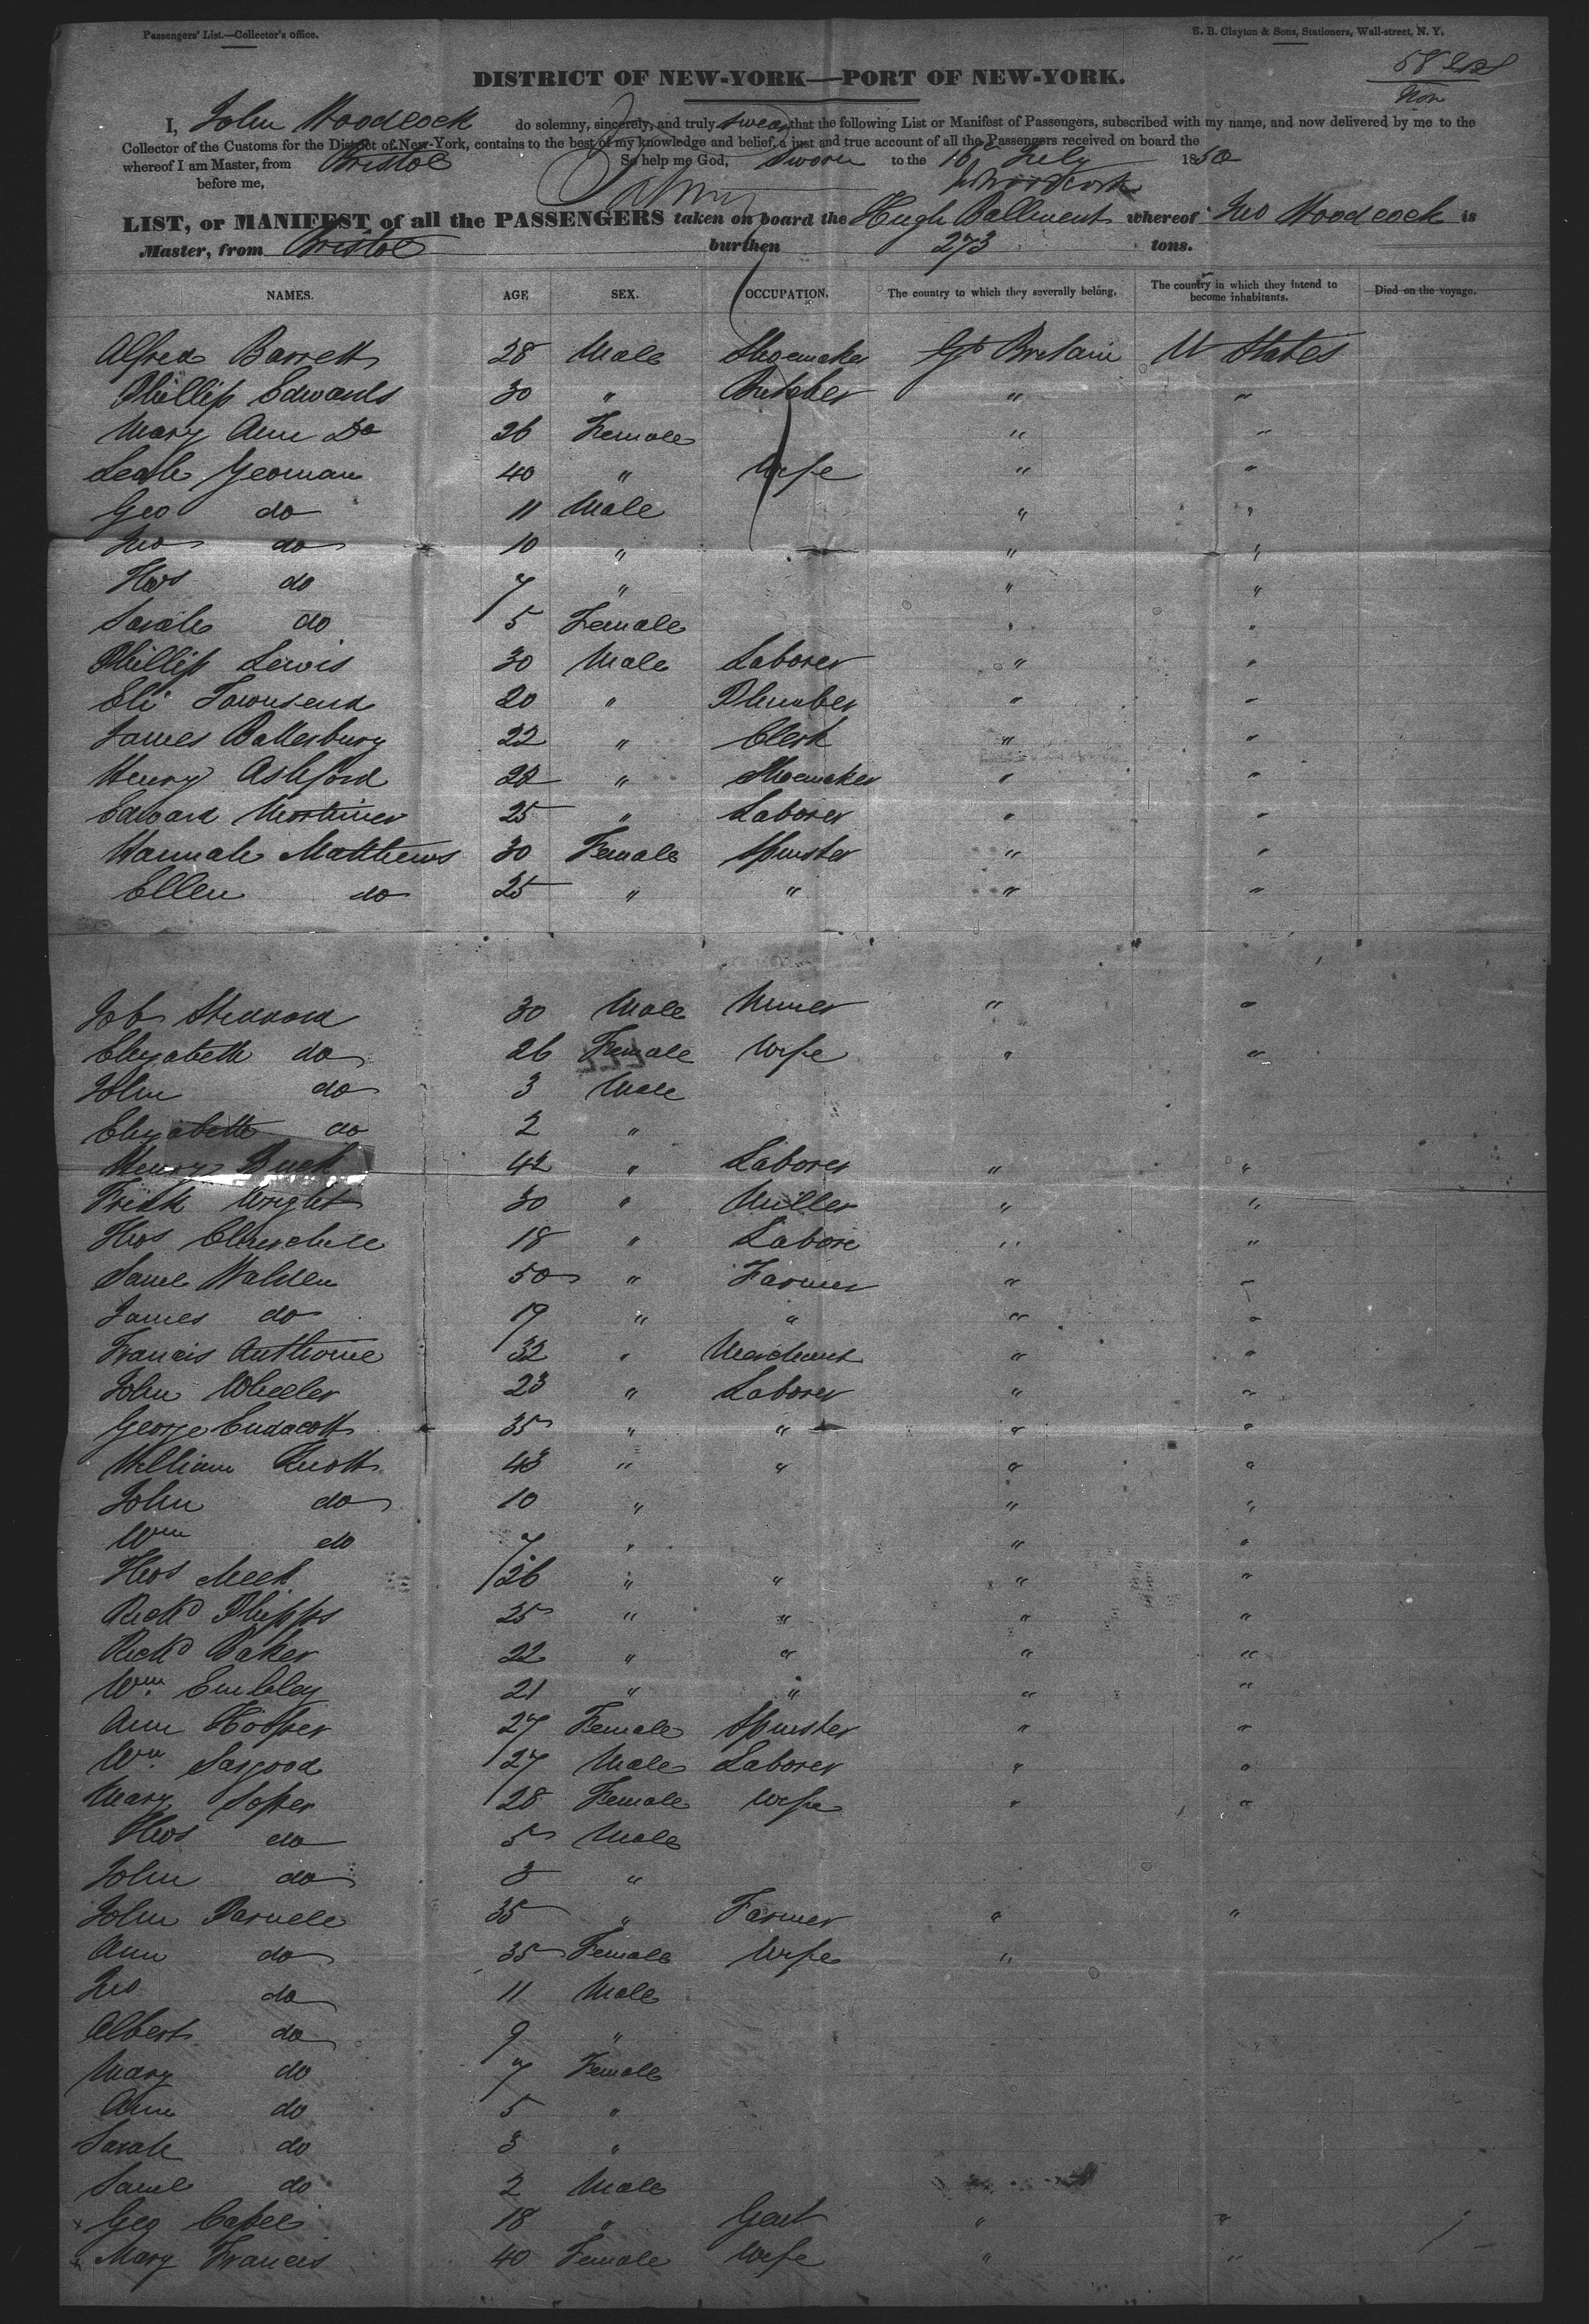 Passengers' List.—Collector's office.
E. B. Clayton & Sons, Stationers, Wall-street, N. Y.
DISTRICT OF NEW-YORK—PORT OF NEW-YORK.
I, John Woodcock do solemny, sincerely, and truly swear that the following List or Manifest of Passengers, subscribed with my name, and now delivered by me to the
Collector of the Customs for the District of New-York, contains to the best of my knowledge and belief, a just and true account of all the Passengers received on board the
whereof I am Master, from Bristol So help me God, Sworn to the 16 July 1850
before me, Jno Woodcock
LIST, or MANIFEST of all the PASSENGERS taken on board the Hugh Ballment whereof Jno Woodcock is
Master, from Bristol burthen 273 tons.
NAMES. AGE SEX. OCCUPATION. The country to which they severally belong. The country in which they intend to become inhabitants. Died on the voyage.
Alfred Barrett 28 Male Shoemaker Gt Britain U States
Phillip Edwards 30 " Butcher " "
Mary Ann Do 26 Female " "
Leah Yeoman 40 " Wife " "
Geo do 11 Male " "
Jno do 10 " " "
Thos do 7 " " "
Sarah do 5 Female " "
Phillip Lewis 30 Male Laborer " "
Eli Townsend 20 " Plumber " "
James Battesbury 22 " Clerk " "
Henry Ashford 28 " Shoemaker " "
Edward Mortimer 25 " Laborer " "
Hannah Matthews 30 Female Spinster " "
Ellen do 25 " " " "
Job 30 Male Miner " "
Elizabeth do 26 Female Wife " "
John do 3 Male
Elizabeth do 2 "
Henry Buck 42 " Laborer " "
Fredk Wright 30 " Miller " "
Thos Churchill 18 " Labore " "
Saml Walden 50 " Farmer " "
James do 19 " " " "
Francis Anthonie 32 " Merchant " "
John Wheeler 23 " Laborer " "
George Endacott 35 " " " "
William Knott 43 " " " "
John do 10 " " "
Wm do 7 " " "
Thos Meek 26 " " " "
Richd Phipps 25 " " " "
Richd Baker 22 " " " "
Wm Embley 21 " " " "
Ann Hooper 27 Female Spinster " "
Wm Sargood 27 Male Laborer " "
Mary Soper 28 Female Wife " "
Thos do 5 Male
John do 3 "
John Parnell 35 " Farmer " "
Ann do 35 Female Wife "
Jno do 11 Male
Albert do 9 "
Mary do 7 Female
Ann do 5 "
Sarah do 3 "
Saml do 2 Male
Geo Capel 18 " Gent " "
Mary Francis 40 Female Wife " "